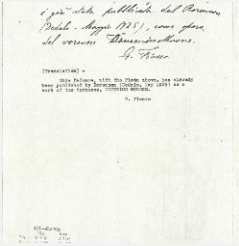 è già stata pubblicata dal Berenson
(Dedalo - Maggio 1925), come opera
del veronese Domenico Morone.
G. Fiocco
(Translation) -
Dove Madonna, with the Pieta above, has already
been published by Berenson (Dedalo, May 1925) as a
work of the Veronese, DOMENICO MORONE.
G. Fiocco